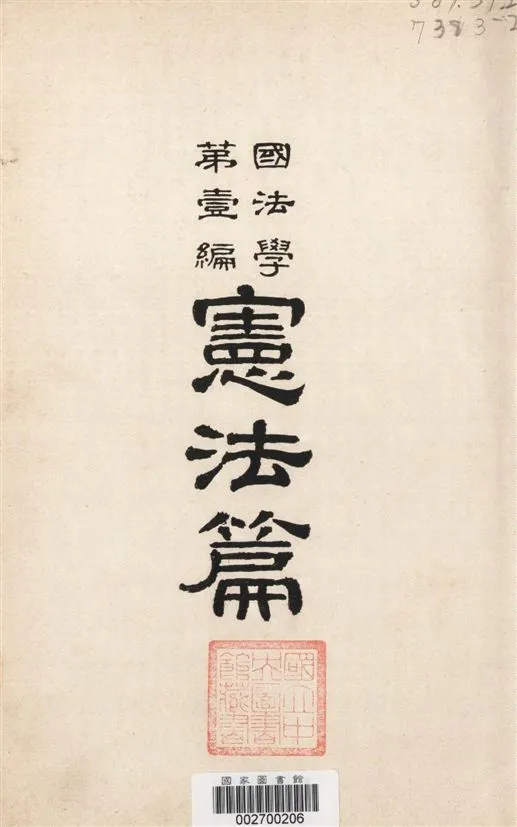 國法學
第壹編
憲法篇
國立中
央圖書
館藏書
國家圖書館
002700206